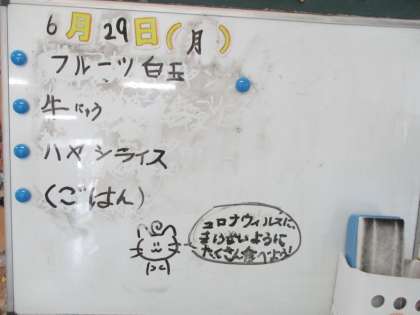 6月29日(月)
フルーツ白玉
牛にゅう
ハヤシライス
(ごはん)
コロナウィルスに、
まけないように
たくさん食べよう